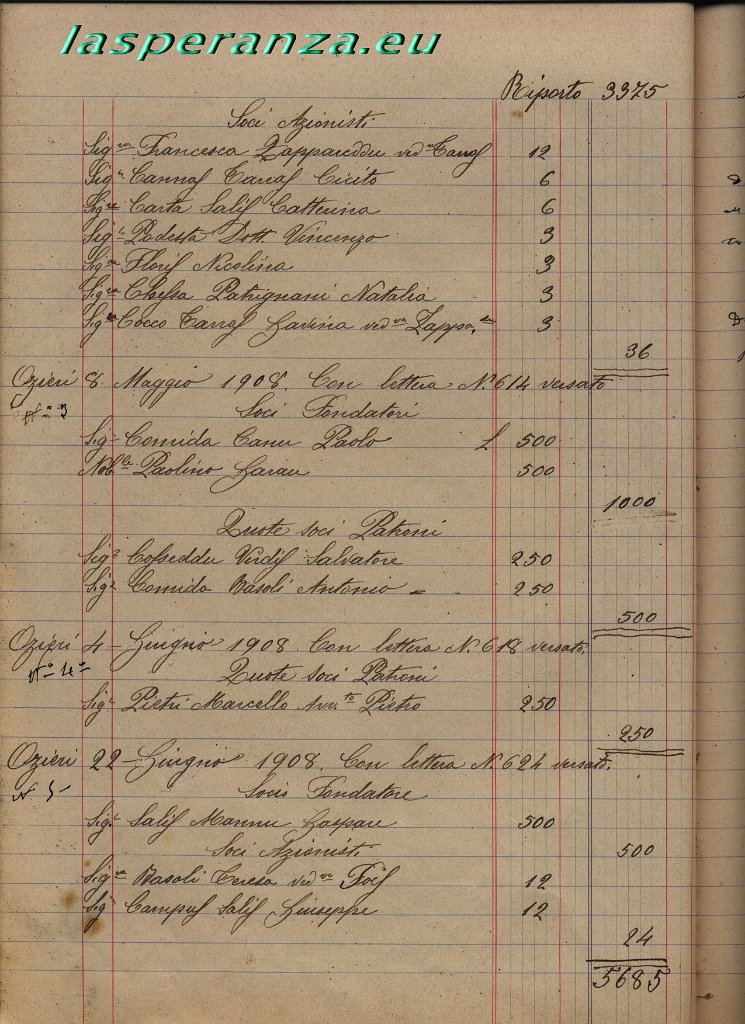 lasperanza.eu
Riporto 3375
Soci Azionisti
Sig.ra Francesca Zappareddu ved.a Taras 12
Sig.r Cannas Taras Cicito 6
Sig.ra Carta Salis Catterina 6
Sig.r Podesta Dott. Vincenzo 3
Sig.ra Floris Nicolina 3
Sig.ra Chessa Patrignani Natalia 3
Sig.ra Cocco Tarras Gavina ved.va 3
36
Ozieri 8 Maggio 1908. Con lettera N. 614 versato
Soci Fondatori
Sig. Comida Canu Paolo L 500
Nob.le Paolino Garau 500
1000
Quote soci Patroni
Sig.r Cosseddu Virdis Salvatore 250
Sig.r Comida Basoli Antonio 250
500
Ozieri 4 Giugno 1908. Con lettera N. 618 versato.
N° 4°
Quote soci Patroni
Sig.r Pietri Marcello Pietro 250
250
Ozieri 22 Giugno 1908. Con lettera N. 624 versato.
N 5
Socio Fondatore
Sig.r Salis Mannu Gaspare 500
Soci Azionisti 500
Sig.ra Basoli Teresa ved.va Fois 12
Sig. Campus Salis Giuseppe 12
24
5685